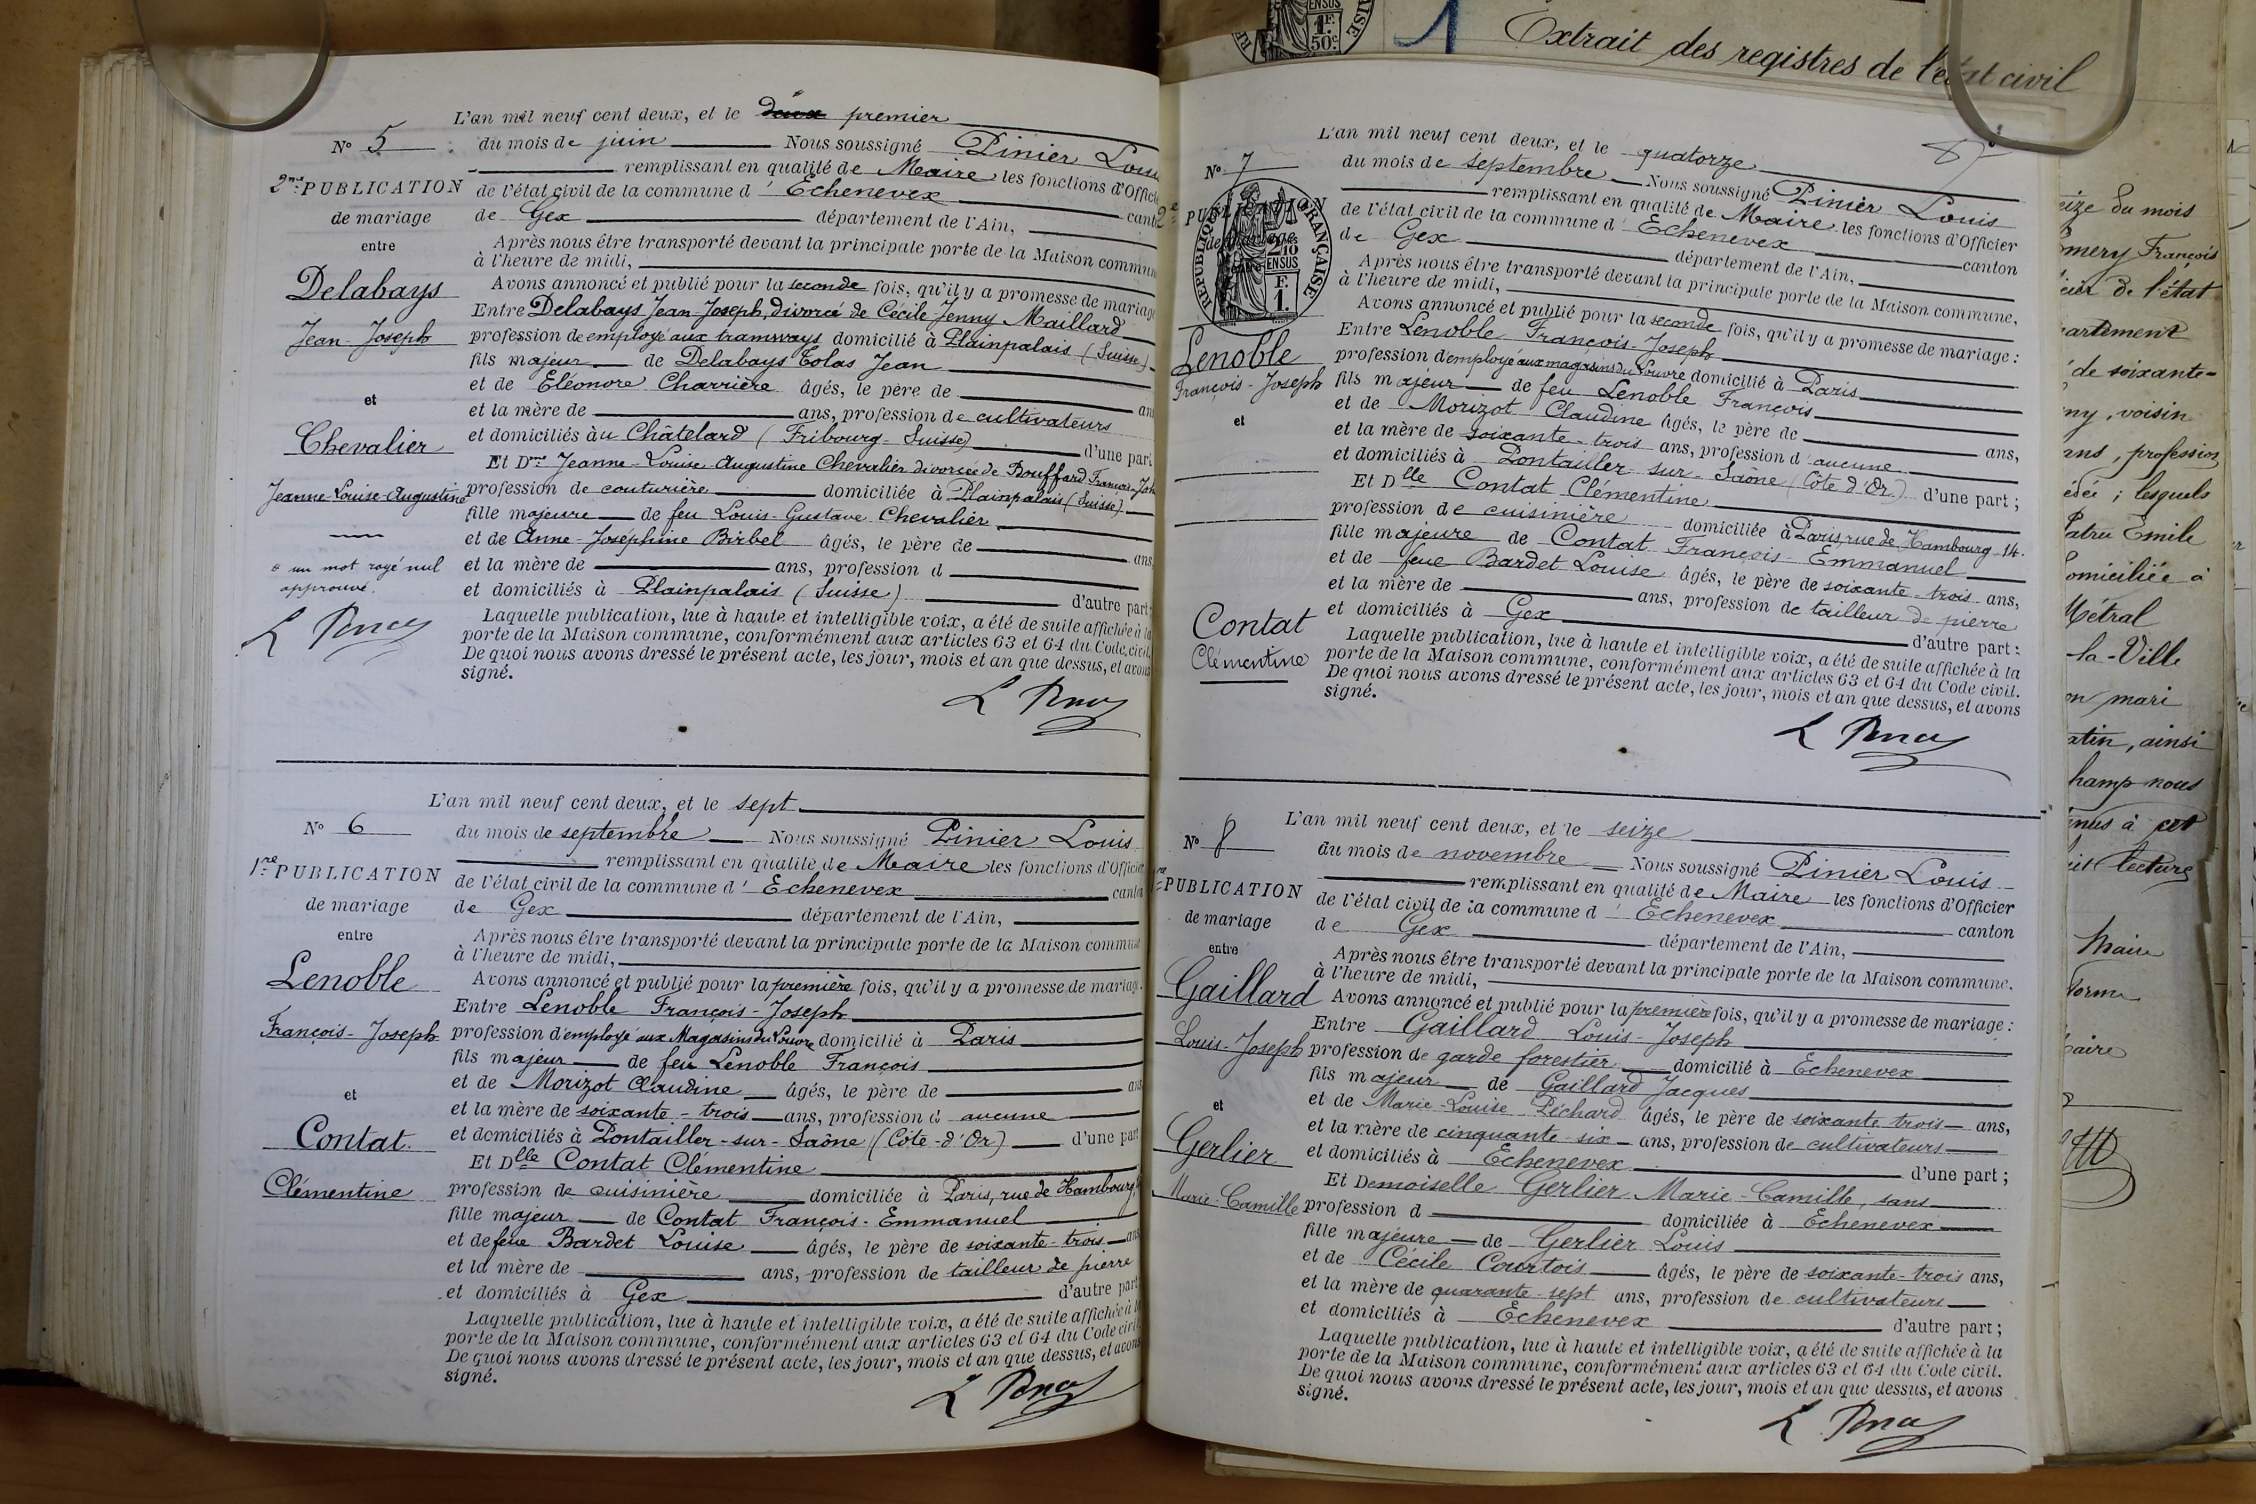 L'an mil neuf cent deux, et le deux premier
N° 5
du mois de juin Nous soussigné Pinier Loui
remplissant en qualité de Maire les fonctions d'Offici
2me PUBLICATION
de l'état civil de la commune d' Echenevex canto
de mariage
de Gex département de l'Ain,
entre
Après nous être transporté devant la principale porte de la Maison commun
à l'heure de midi,
Delabays
Avons annoncé et publié pour la seconde fois, qu'il y a promesse de mariage
Entre Delabays Jean-Joseph, divorcé de Cécile-Jenny Maillard
Jean-Joseph
profession de employé aux tramways domicilié à Plainpalais (Suisse)
fils majeur de Delabays Colas Jean
et de Eléonore Charrière âgés, le père de an
et
et la mère de ans, profession de cultivateurs
et domiciliés à u Châtelard (Fribourg-Suisse) d'une part
Chevalier
Et Dme Jeanne-Louise-Augustine Chevalier divorcée de Bouffard François-Joh
Jeanne-Louise-Augustine
profession de couturière domiciliée à Plainpalais (Suisse)
fille majeure de feu Louis-Gustave Chevalier
et de Anne-Joséphine Birbel âgés, le père de ans
un mot rayé nul
approuvé.
et la mère de ans, profession d
et domiciliés à Plainpalais (Suisse) d'autre part
Laquelle publication, lue à haute et intelligible voix, a été de suite affichée à la
porte de la Maison commune, conformément aux articles 63 et 64 du Code civil.
De quoi nous avons dressé le présent acte, les jour, mois et an que dessus, et avons
signé.
L'an mil neuf cent deux, et le sept
N° 6
du mois de septembre Nous soussigné Pinier Louis
remplissant en qualité de Maire les fonctions d'Officier
1re PUBLICATION
de l'état civil de la commune d' Echenevex canton
de mariage
de Gex département de l'Ain,
entre
Après nous être transporté devant la principale porte de la Maison commune
à l'heure de midi,
Lenoble
Avons annoncé et publié pour la première fois, qu'il y a promesse de mariage.
Entre Lenoble François-Joseph
François-Joseph
profession d'employé aux Magasins du Louvre domicilié à Paris
fils majeur de feu Lenoble François
et
et de Morizot Claudine âgés, le père de ans
et la mère de soixante-trois ans, profession d aucune
Contat
et domiciliés à Pontailler-sur-Saône (Côte-d'Or) d'une part
Et Dlle Contat Clémentine
Clémentine
profession de cuisinière domiciliée à Paris, rue de Hambourg,
fille majeur de Contat François-Emmanuel
et de feue Bardet Louise âgés, le père de soixante-trois ans
et la mère de ans, profession de tailleur de pierre
et domiciliés à Gex d'autre part
Laquelle publication, lue à haute et intelligible voix, a été de suite affichée à la
porte de la Maison commune, conformément aux articles 63 et 64 du Code civil
De quoi nous avons dressé le présent acte, les jour, mois et an que dessus, et avons
signé.
1 Extrait des registres de l'état civil
L'an mil neuf cent deux, et le quatorze
N° 7
du mois de septembre Nous soussigné Pinier Louis
remplissant en qualité de Maire les fonctions d'Officier
2e PUBLICATION
de mariage
RÉPUBLIQUE FRANÇAISE
2/10 EN SUS
1 F.
de l'état civil de la commune d' Echenevex canton
de Gex département de l'Ain,
Après nous être transporté devant la principale porte de la Maison commune,
à l'heure de midi,
Avons annoncé et publié pour la seconde fois, qu'il y a promesse de mariage :
Lenoble
Entre Lenoble François-Joseph
François-Joseph
profession d'employé aux magasins du Louvre domicilié à Paris
fils majeur de feu Lenoble François
et
et de Morizot Claudine âgés, le père de ans,
et la mère de soixante-trois ans, profession d'aucune
et domiciliés à Pontailler-sur-Saône (Côte d'Or) d'une part ;
Et Dlle Contat Clémentine
profession de cuisinière domiciliée à Paris, rue de Hambourg 14.
fille majeure de Contat François-Emmanuel
et de feue Bardet Louise âgés, le père de soixante-trois ans,
et la mère de ans, profession de tailleur de pierre
Contat
Clémentine
et domiciliés à Gex d'autre part :
Laquelle publication, lue à haute et intelligible voix, a été de suite affichée à la
porte de la Maison commune, conformément aux articles 63 et 64 du Code civil.
De quoi nous avons dressé le présent acte, les jour, mois et an que dessus, et avons
signé.
L'an mil neuf cent deux, et le seize
N° 8
du mois de novembre Nous soussigné Pinier Louis
remplissant en qualité de Maire les fonctions d'Officier
1re PUBLICATION
de l'état civil de la commune d' Echenevex canton
de mariage
de Gex département de l'Ain,
entre
Après nous être transporté devant la principale porte de la Maison commune.
à l'heure de midi,
Gaillard
Avons annoncé et publié pour la première fois, qu'il y a promesse de mariage :
Entre Gaillard Louis-Joseph
Louis-Joseph
profession de garde forestier domicilié à Echenevex
fils majeur de Gaillard Jacques
et
et de Marie-Louise Péchard âgés, le père de soixante trois ans,
et la mère de cinquante-six ans, profession de cultivateurs
Gerlier
et domiciliés à Echenevex d'une part ;
Et Demoiselle Gerlier Marie-Camille, sans
Marie-Camille
profession d domiciliée à Echenevex
fille majeure de Gerlier Louis
et de Cécile Courtois âgés, le père de soixante-trois ans,
et la mère de quarante-sept ans, profession de cultivateurs
et domiciliés à Echenevex d'autre part ;
Laquelle publication, lue à haute et intelligible voix, a été de suite affichée à la
porte de la Maison commune, conformément aux articles 63 et 64 du Code civil.
De quoi nous avons dressé le présent acte, les jour, mois et an que dessus, et avons
signé.
eize du mois
mery François
cier de l'état
artement
de soixante-
ny, voisin
ans, profession
lesquels
Patru Emile
omiciliée à
Métral
la-Ville
on mari
atin, ainsi
hamp nous
enus à cet
lecture
Maire
forme
aire